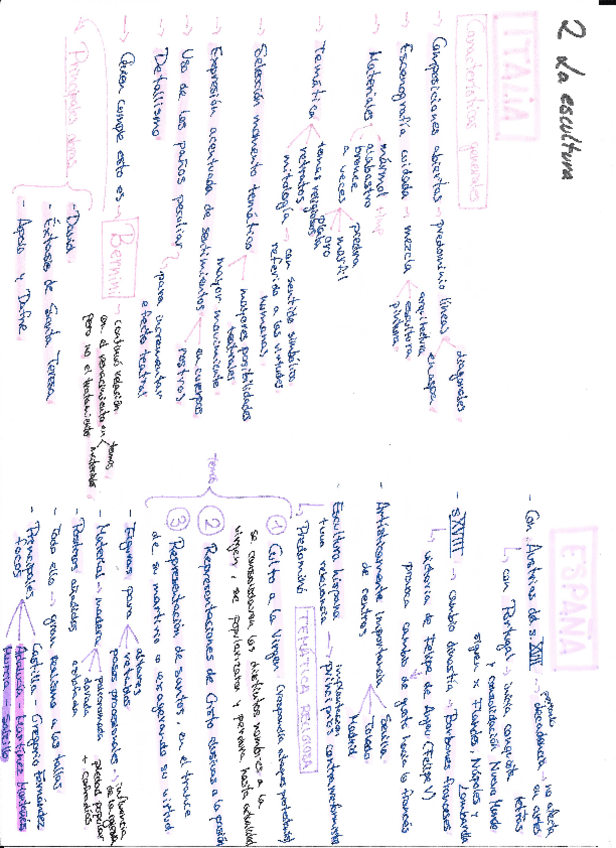 2 La escultura
ITALIA
Características generales
→ Composiciones abiertas → predominio líneas
diagonales
en aspa
→ Escenografía cuidada → mezcla
arquitectura
escultura
pintura
→ Materiales
mármol
alabastro
bronce
a veces
piedra
marfil
oro
plata
→ Temática
temas religiosos
retratos
mitología → con sentido simbólico
referido a las virtudes
humanas
→ Selección momento temático
mayores posibilidades
teatrales
mayor movimiento
→ Expresión acentuada de sentimientos
en cuerpos
rostros
→ Uso de los paños peculiar
para incrementar
efecto teatral
→ Detallismo
→ Quien cumple esto es → Bernini → continuó relación
con el renacimiento en temas
pero no el tratamiento
Principales obras
- David
- Éxtasis de Santa Teresa
- Apolo y Dafne
ESPAÑA
- Con Austrias del s. XVII
decadencia → no afecta
a artes
↳ con Portugal → nueva conquista
y consolidación Nuevo Mundo
siguen x Flandes, Nápoles y
Lombardía
- s XVIII → cambio dinastía → Borbones franceses
↳ victoria de Felipe de Anjou (Felipe V)
provoca cambio de gusto hacia lo francés
- Artísticamente importancia
de centros
Sevilla
Toledo
Madrid
- Escultura hispana
tuvo relevancia
implantación
principios contrarreformista
↳ Predominó TEMÁTICA RELIGIOSA
Temas
1 Culto a la Virgen
se consolidaron los distintos nombres a la
virgen, se popularizaron y perduran hasta actualidad
2 Representaciones de Cristo alusivas a la pasión
3 Representación de santos, en el trance
de su martirio o exagerando su virtud
- Figuras para
altares
retablos
pasos procesionales → influencia
de la
popular
+ cofradías
- Material → madera
policromada
dorada
estofada
- Postizos añadidos
- Todo ello → gran realismo a las tallas
- Principales
focos
Castilla - Gregorio Fernández
Andalucía - Martínez Montañés
Murcia - Salzillo